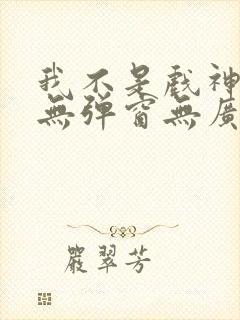 我不是戲神
無彈窗無廣
嚴翠芳